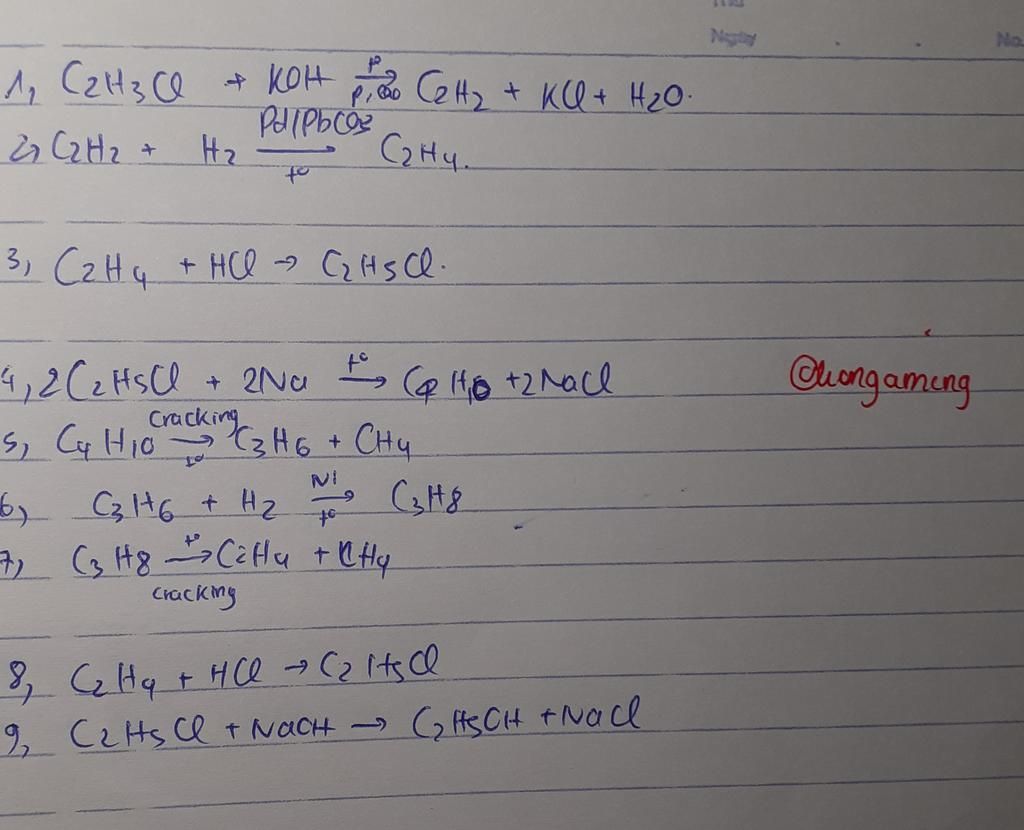 Thứ
Ngày . . No.
1, C2H3Cl + KOH C2H2 + KCl + H2O.
2, C2H2 + H2 Pd/PbCO3 t° → C2H4.
3, C2H4 + HCl → C2H5Cl.
4, 2C2H5Cl + 2Na t° → C4H10 + 2NaCl
@huongameng
5, C4H10 cracking t° → C3H6 + CH4
6, C3H6 + H2 Ni t° → C3H8
7, C3H8 t° → cracking C2H4 + CH4
8, C2H4 + HCl → C2H5Cl
9, C2H5Cl + NaOH → C2H5OH + NaCl